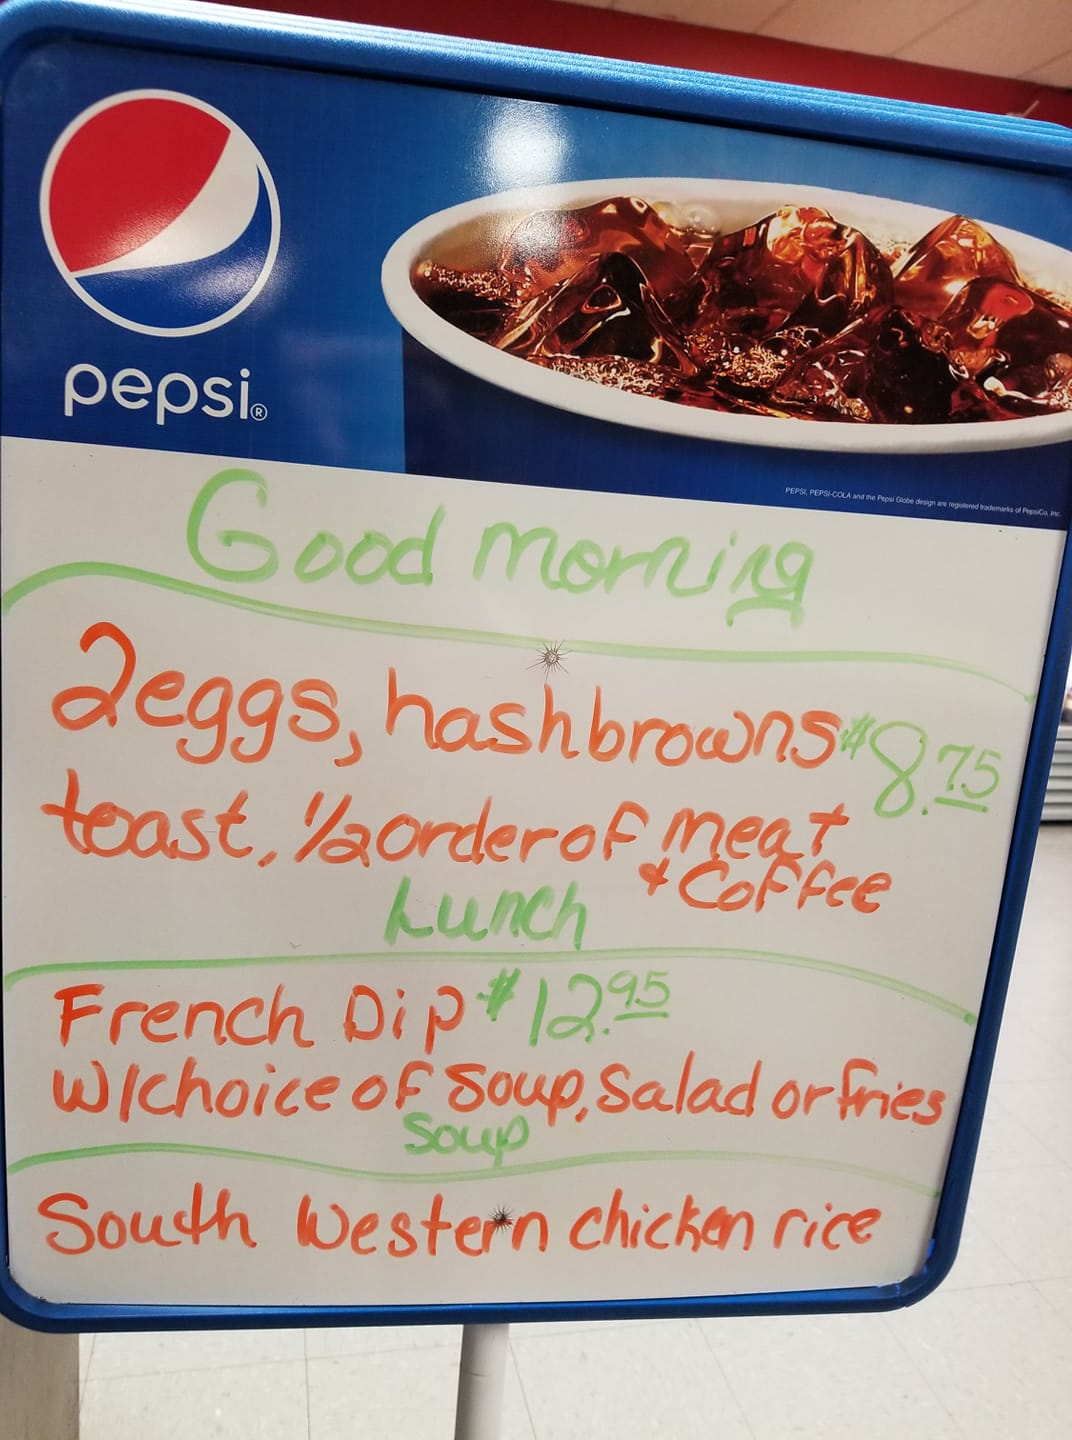 pepsi®
PEPSI, PEPSI-COLA and the Pepsi Globe design are registered trademarks of PepsiCo, Inc.
Good morning
2 eggs, hashbrowns $8.75
toast, 1/2 order of meat
& Coffee
Lunch
French Dip $12.95
W/choice of Soup, Salad or fries
Soup
South Western chicken rice